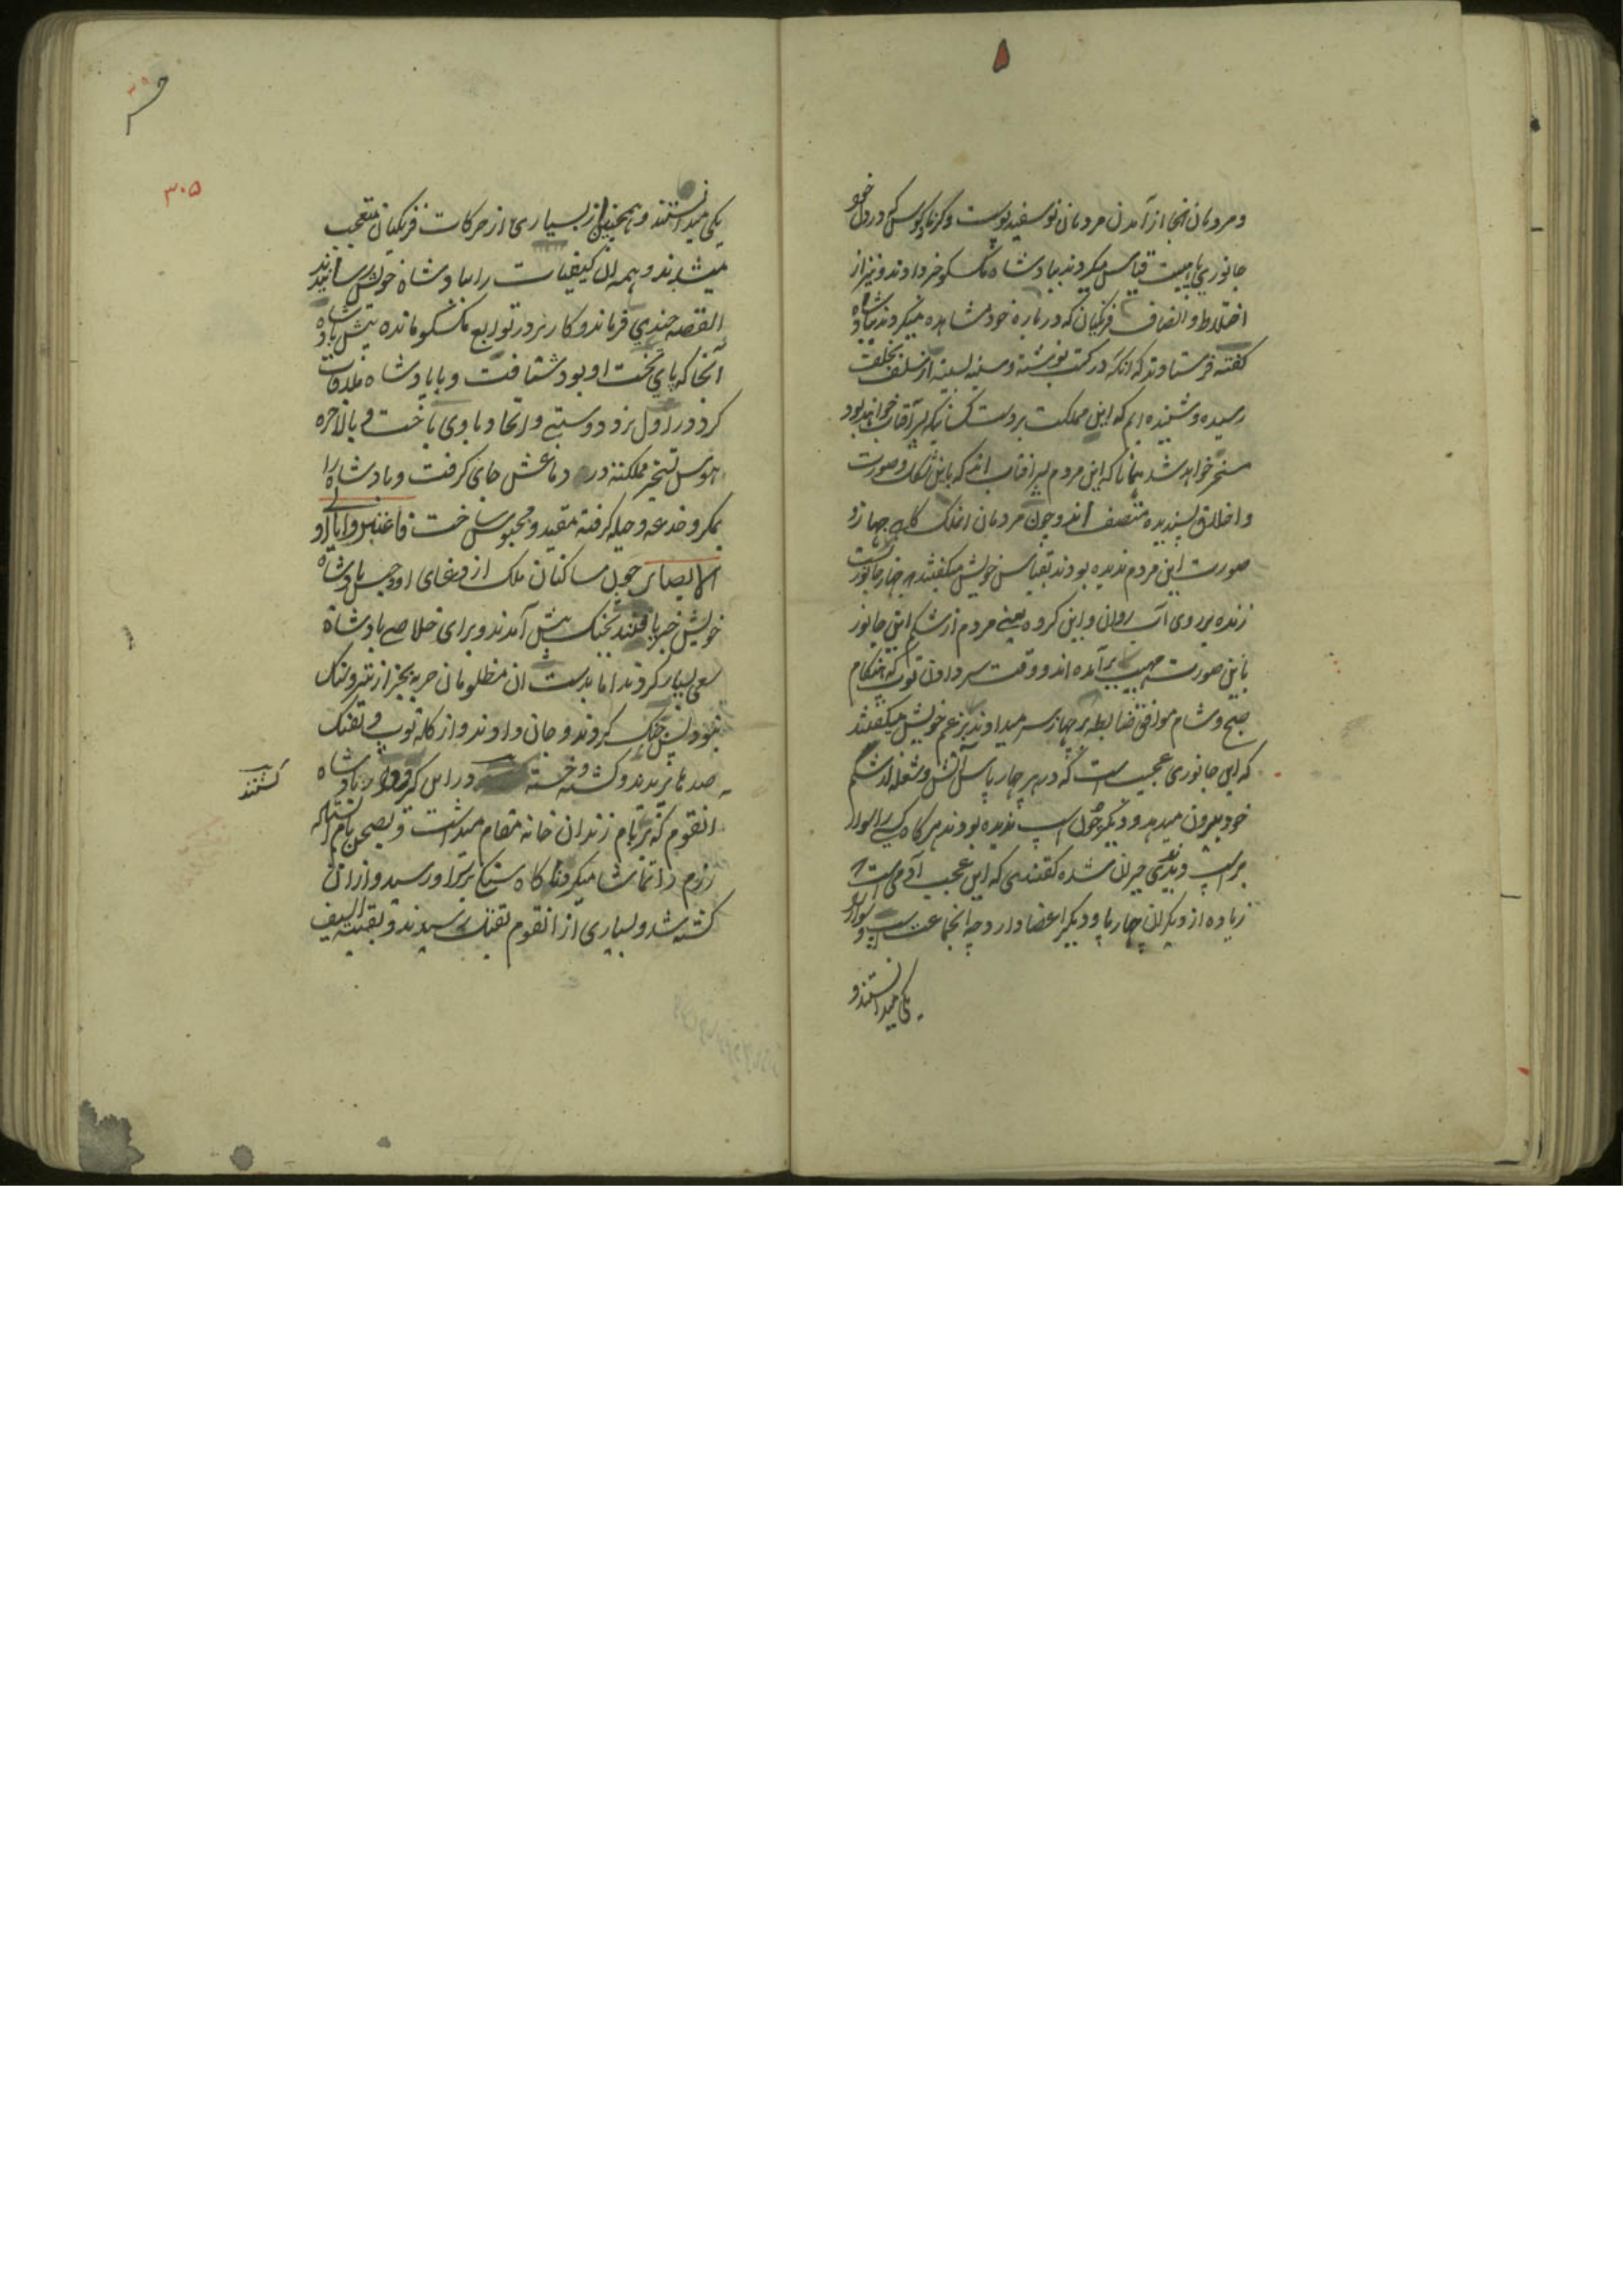 و مردمان انجا از آمدن مردمان نو سفید پوست و کرنا و کوس که در دل خود
جانوری با هیبت قیاس میکردند بپادشاه مکسکو خبر دادند و نیز از
اختلاط و انصاف فرنکیان که درباره خود مشاهده میکردند بپادشاه
کفته فرستادند که انکه در کتب نوشته و سینه بسینه از سلف بخلف
رسیده و شنیده ایم که این مملکت بر دست کسانیکه پسر آفتاب خواهند بود
مسخر خواهد شد همانا که این مردم پسر افتاب اند که باین شکل و صورت
و اخلاق پسندیده متصف اند و چون مردمان انملک کاهی جهاز و
صورت این مردم ندیده بودند بقیاس خویش میکفتند که جهاز جانوریست
زنده بر روی آب روان و این کروه یعنی مردم از شکم این جانور
باین صورت مهیب برآمده اند و وقت سر دادن توپ که هنکام
صبح و شام موافق ضابطه بر جهاز سر میدادند بزعم خویش میکفتند
که این جانوری عجیب است که در هر چار پاس آتش و شعله از شکم
خود بیرون میدهد و دیکر چون اسپ ندیده بودند هر کاه کسی را سوار
بر اسپ دیدندی حیران شده کفتندی که این عجب آدمی است
زیاده از دیکران چهار پا و دیکر اعضا دارد چه انجماعت اسپ و سوار را
یکی میدانستند و
۳۰۵
یکی میدانستند و همچنین از بسیاری از حرکات فرنکیان متعجب
میشدند و همه ان کیفیات را بپادشاه خویش رسانیدند
القصه چندی فرماندو کارتز در توابع مکسکو مانده پیش پادشاه
آنجا که پای تخت او بود شتافت و با پادشاه ملاقات
کرد و در اول نزد دوستی و اتحاد باوی باخت و بالاخره
هوس تسخیر مملکت در دماغش جای کرفت و پادشاه را
بمکر و خدعه و حیله کرفته مقید و محبوس ساخت فاعتبروا یا اولی
الابصار چون ساکنان ملک از دغای او و حبس پادشاه
خویش خبر یافتند بجنک پیش آمدند و برای خلاصی پادشاه
سعی بسیار کردند اما بدست ان مظلومان حربه بجز از تیر و سنک
نبود پس جنک کردند و جان دادند و از کله توپ و تفنک
صدها پریدند و کشته و خسته در این کیرودار پادشاه
کشتند
انقوم که بر بام زندان خانه مقام میداشت و بصحن بام
رزم را تماشا میکرد ناکاه سنکی بر سر او رسید و از ان
کشته شد و بسیاری از انقوم بقتل رسیدند و بقیة السیف